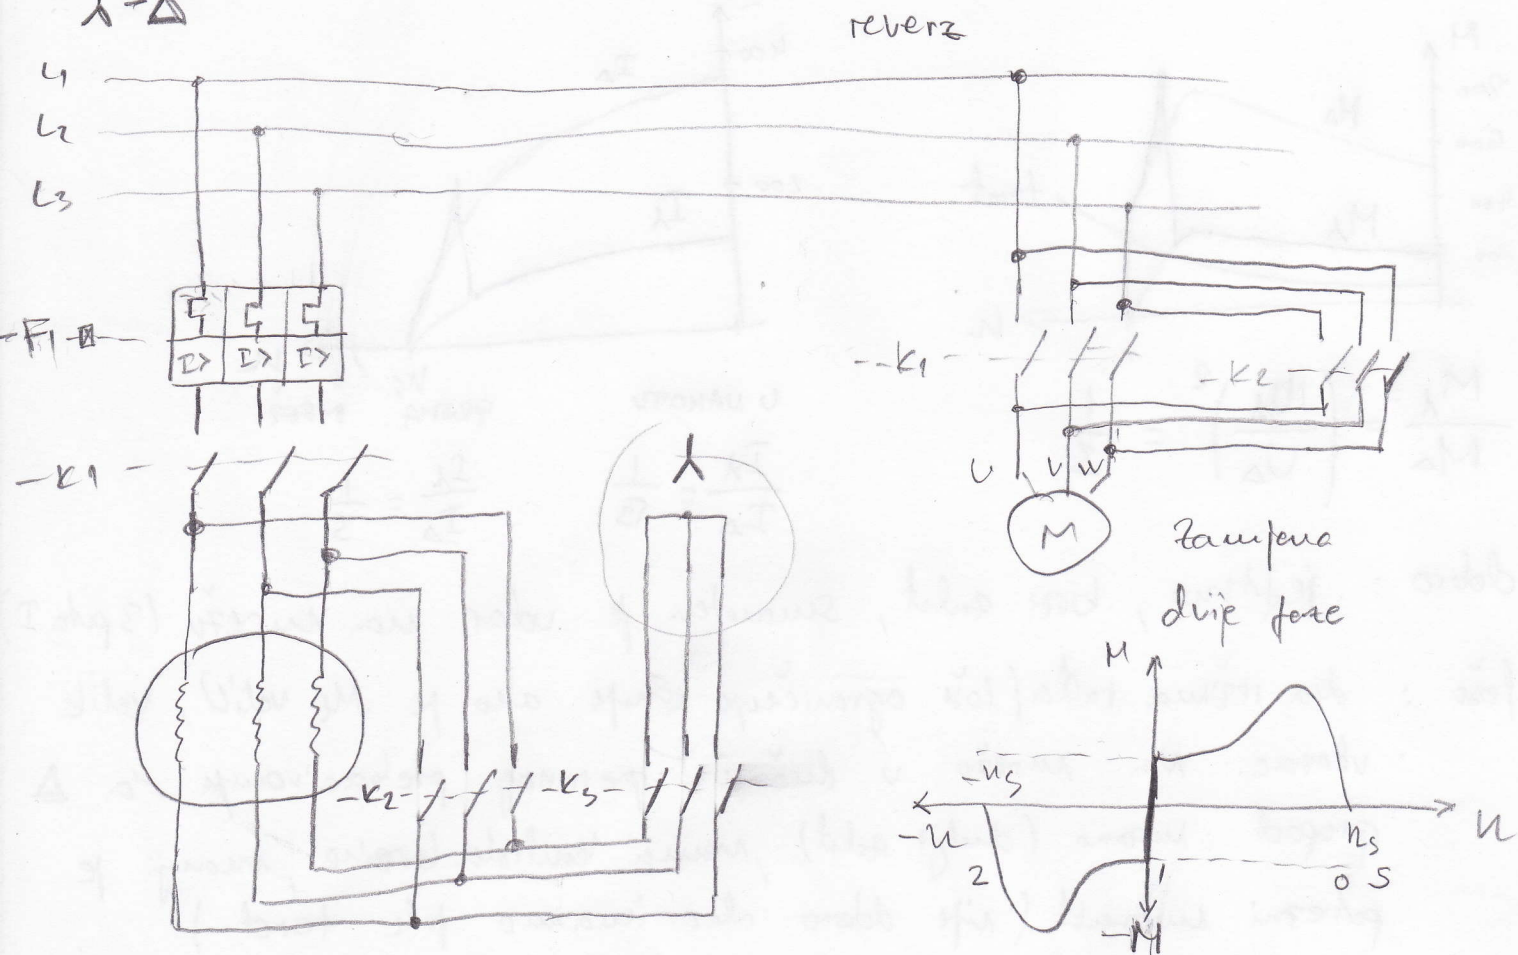 ⅄-Δ
reverz
L1
L2
L3
-F1
I> I> I>
-K1
-K1
-K2
U V W
M
zamjena
dvije faze
-K2
-K3
M
-ns
-n
ns
n
2
1
0 s
-M